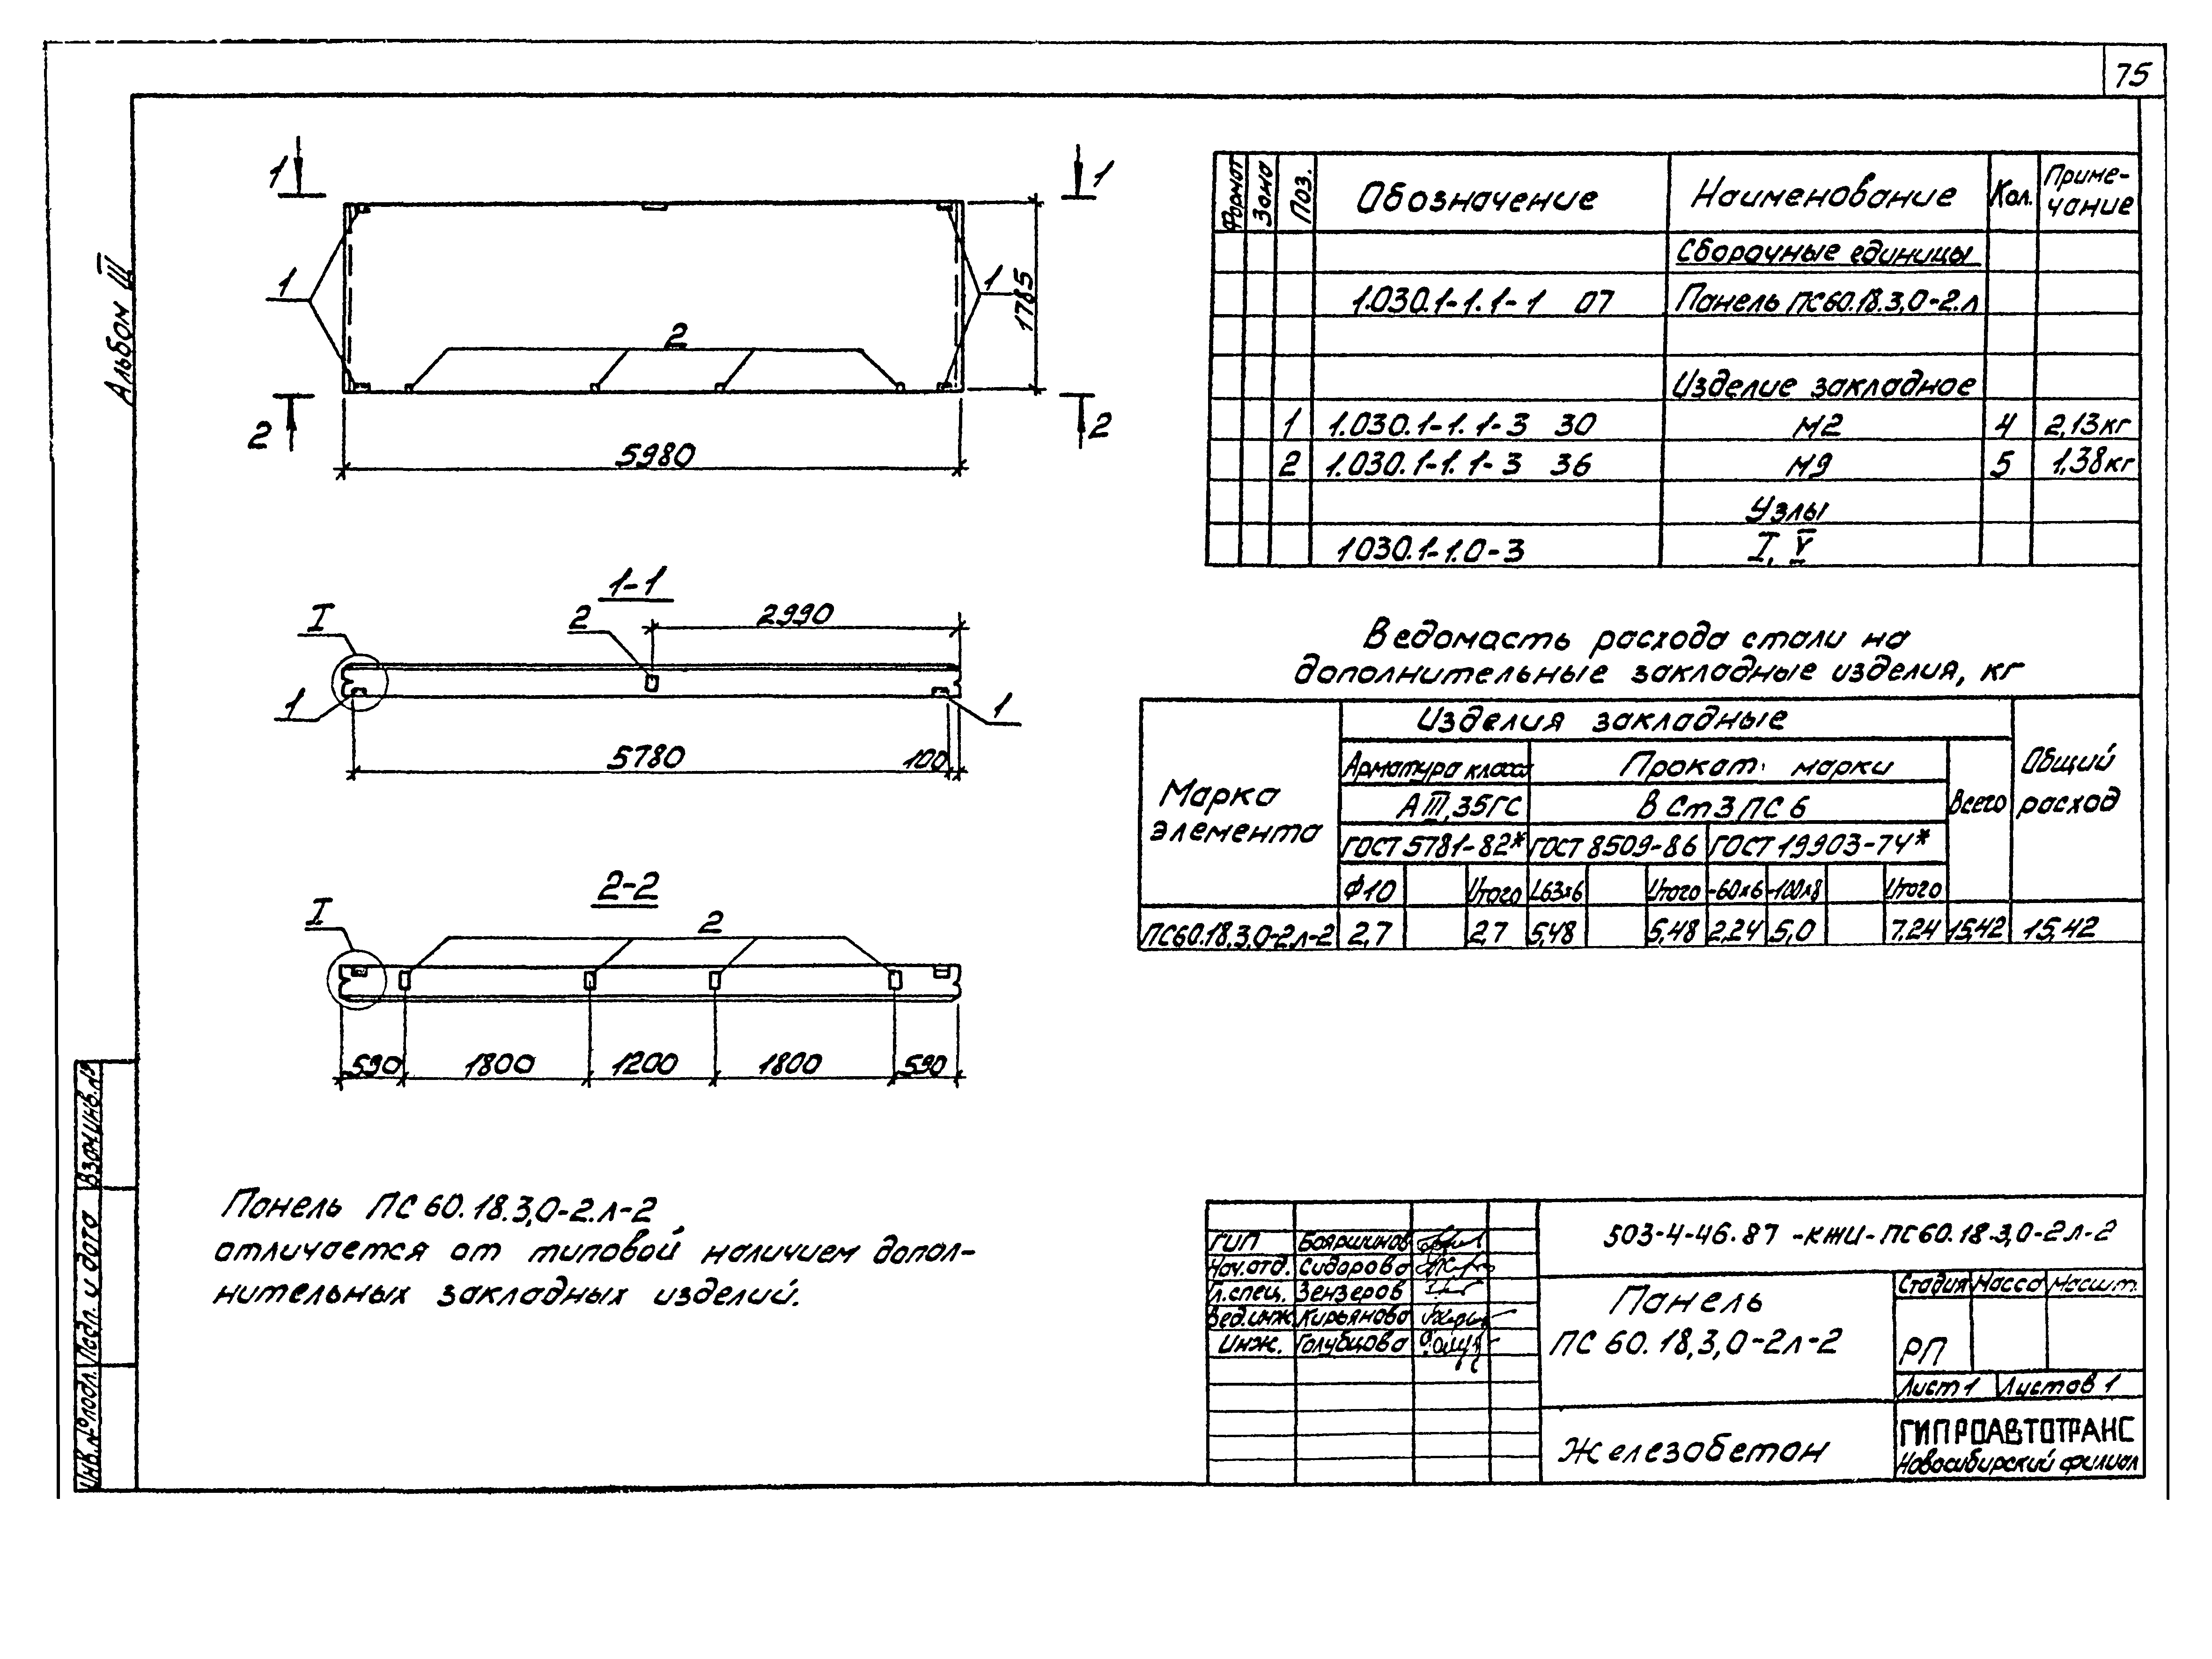 75
Альбом III
1 1
1 1
2
1785
2 2
5980
1-1
I 2 2990
1 1
5780 100
2-2
I 2
590 1800 1200 1800 590
Панель ПС 60.18.3,0-2.л-2
отличается от типовой наличием допол-
нительных закладных изделий.
Формат Зона Поз. Обозначение Наименование Кол. Приме-
чание
Сборочные единицы
1.030.1-1.1-1 07 Панель ПС60.18.3,0-2.л
Изделие закладное
1 1.030.1-1.1-3 30 М2 4 2,13кг
2 1.030.1-1.1-3 36 М9 5 1,38кг
Узлы
1030.1-1.0-3 I, V
Ведомасть расхода стали на
дополнительные закладные изделия, кг
Марка
элемента
Изделия закладные
Общий
расход
Арматура класса Прокат марки
Всего
АIII,35ГС ВСт3ПС6
ГОСТ 5781-82* ГОСТ 8509-86 ГОСТ 19903-74*
Ф10 Итого L63х6 Итого -60х6 -100х8 Итого
ПС60.18,3,0-2.л-2 2,7 2,7 5,48 5,48 2,24 5,0 7.24 15,42 15,42
503-4-46.87 -КЖИ-ПС60.18.3,0-2.л-2
ГИП Бояршинов
Нач.отд. Сидорова
Гл.спец. Зензеров
Вед.инж. Кирьянова
Инж. Голубцова
Панель
ПС 60.18,3,0-2л-2
Стадия Масса Масшт.
РП
Лист 1 Листов 1
Железобетон
ГИПРОАВТОТРАНС
Новосибирский филиал
Взам.инв.№
Подп. и дата
Инв.№ подл.